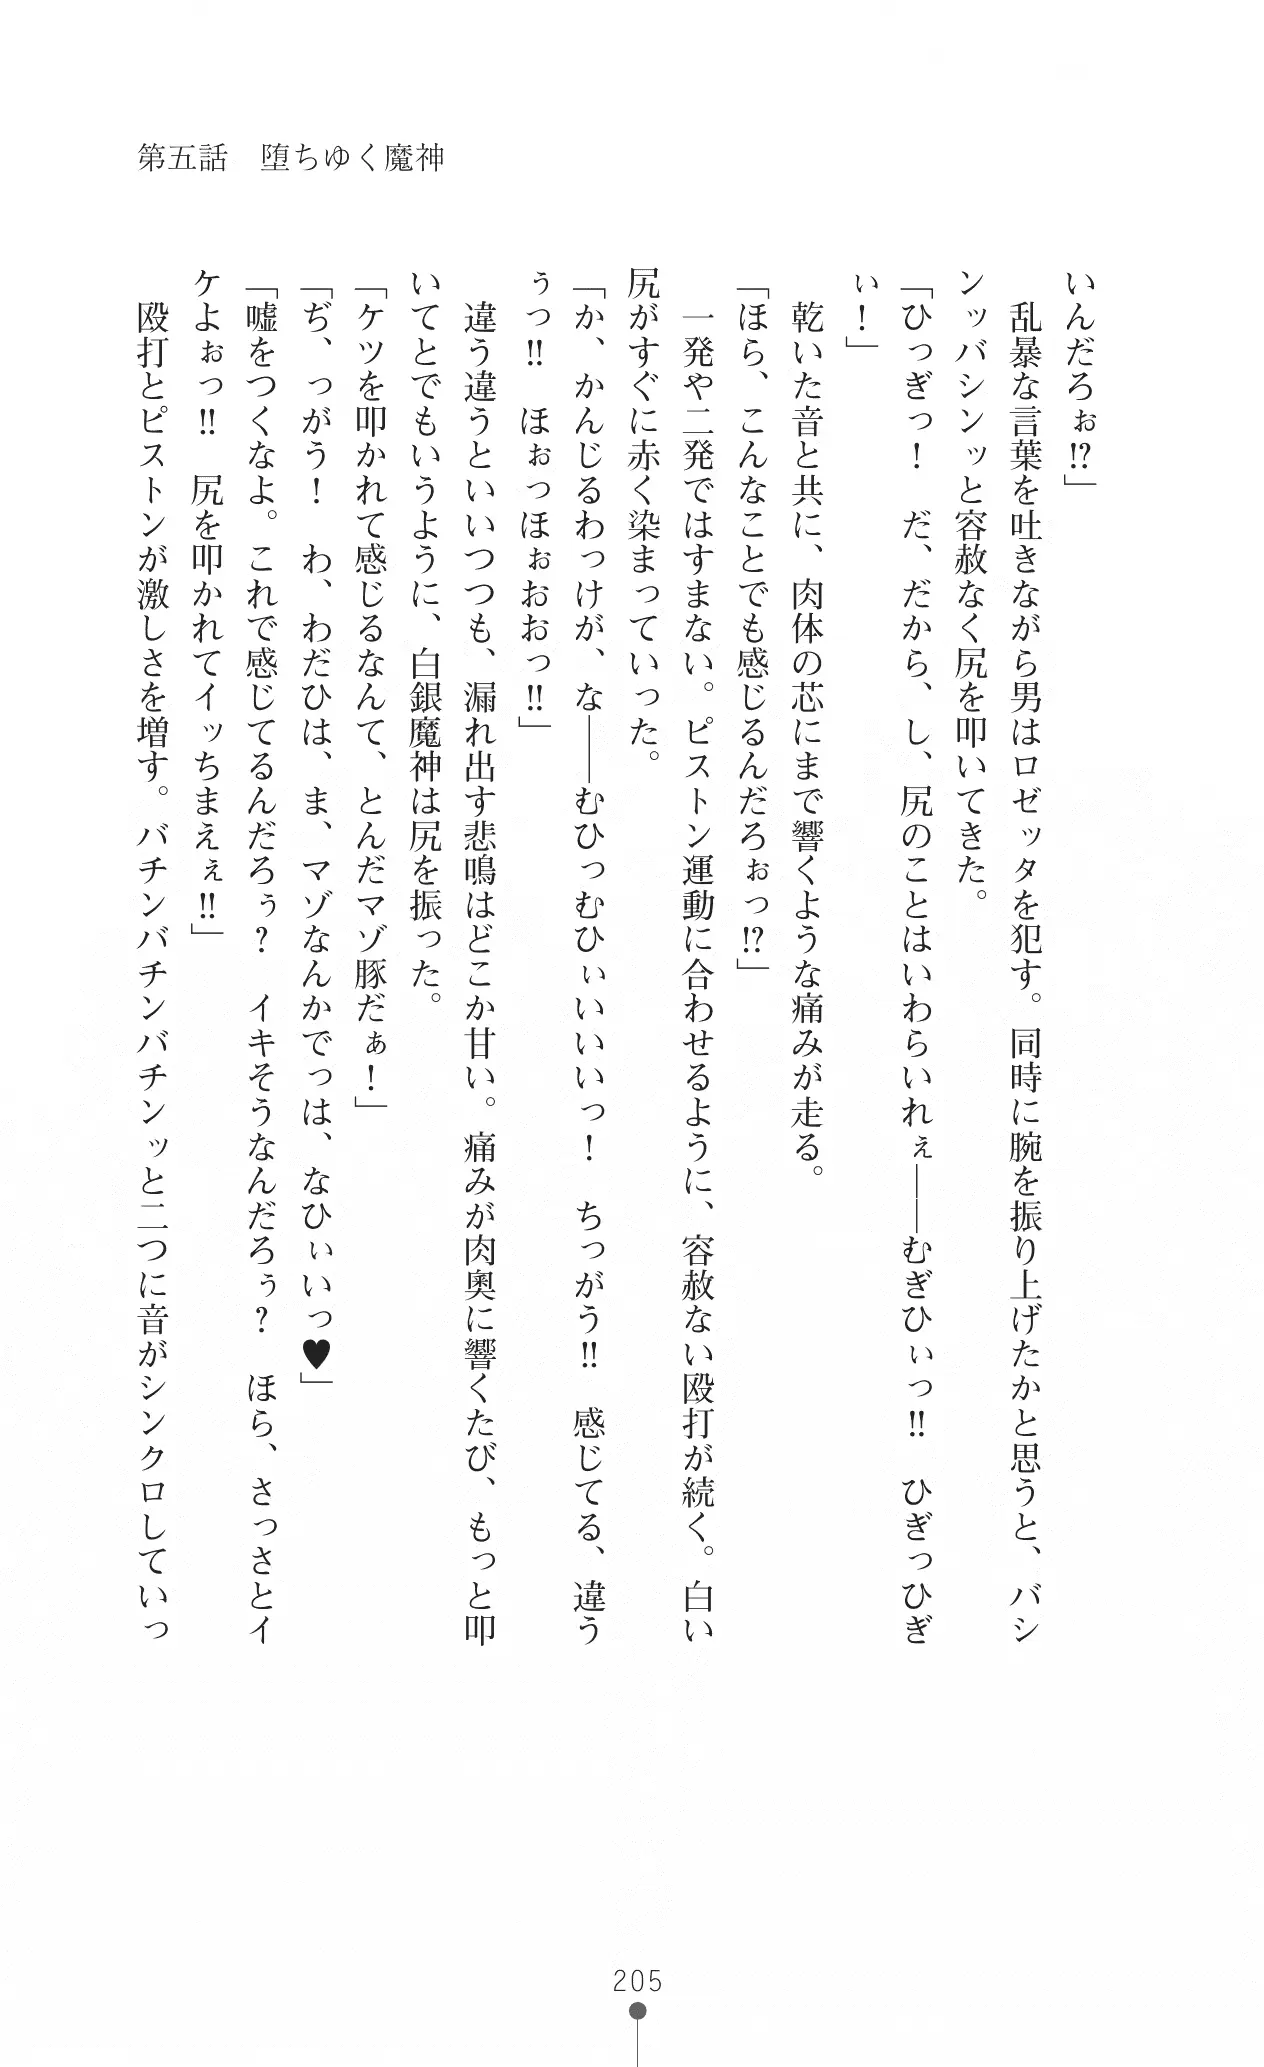 第五話　堕ちゆく魔神
いんだろぉ!?」
　乱暴な言葉を吐きながら男はロゼッタを犯す。同時に腕を振り上げたかと思うと、バシ
ンッバシンッと容赦なく尻を叩いてきた。
「ひっぎっ！　だ、だから、し、尻のことはいわらいれぇ――むぎひぃっ!!　ひぎっひぎ
ぃ！」
　乾いた音と共に、肉体の芯にまで響くような痛みが走る。
「ほら、こんなことでも感じるんだろぉっ!?」
　一発や二発ではすまない。ピストン運動に合わせるように、容赦ない殴打が続く。白い
尻がすぐに赤く染まっていった。
「か、かんじるわっけが、な――むひっむひぃいいいっ！　ちっがう!!　感じてる、違う
ぅっ!!　ほぉっほぉおおっ!!」
　違う違うといいつつも、漏れ出す悲鳴はどこか甘い。痛みが肉奥に響くたび、もっと叩
いてとでもいうように、白銀魔神は尻を振った。
「ケツを叩かれて感じるなんて、とんだマゾ豚だぁ！」
「ぢ、っがう！　わ、わだひは、ま、マゾなんかでっは、なひぃいっ♥」
「嘘をつくなよ。これで感じてるんだろぅ？　イキそうなんだろぅ？　ほら、さっさとイ
ケよぉっ!!　尻を叩かれてイッちまえぇ!!」
　殴打とピストンが激しさを増す。バチンバチンバチンッと二つに音がシンクロしていっ
205